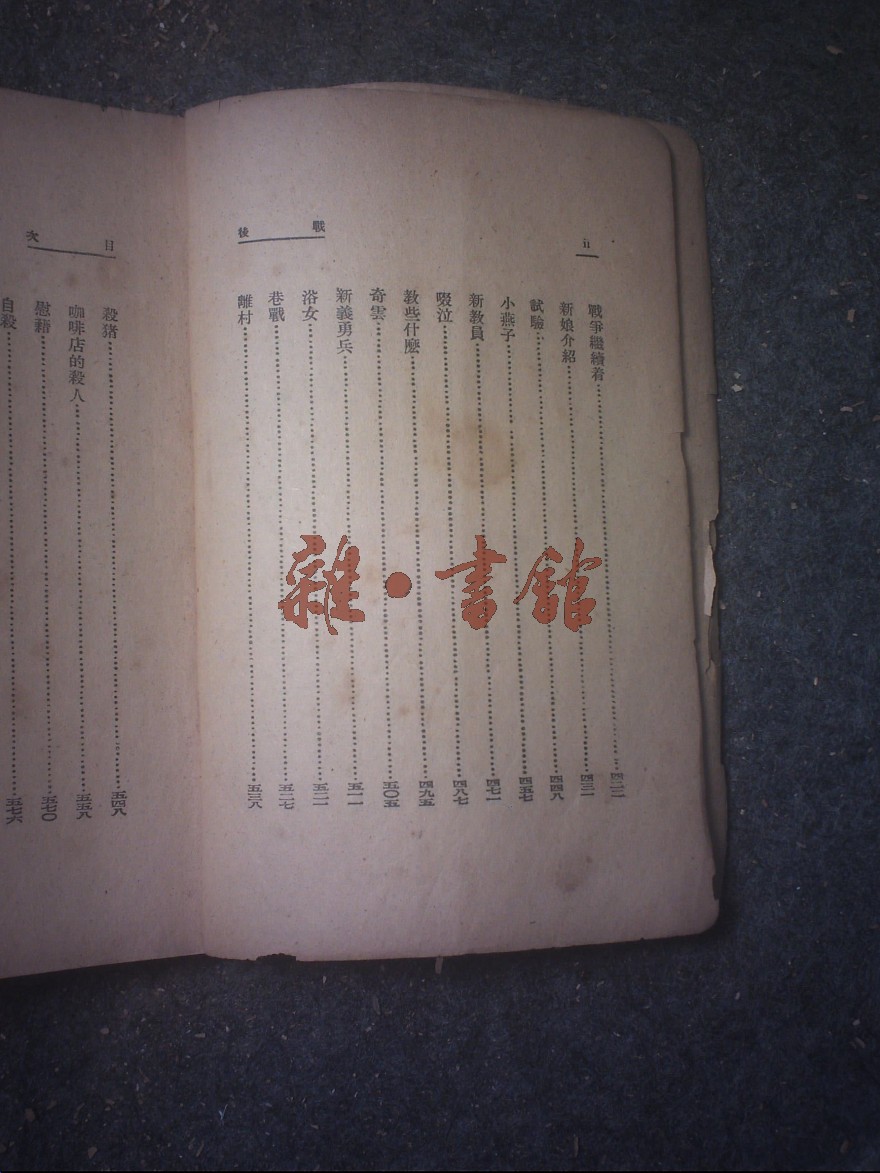 ii
戰後
戰爭繼續着……四二二
新娘介紹……四三一
試驗……四四八
小燕子……四五七
新教員……四七一
啜泣……四八七
教些什麼……四九五
奇雲……五〇五
新義勇兵……五一一
浴女……五二一
巷戰……五二七
離村……五三八
目次
殺猪……五四八
咖啡店的殺人……五五八
慰藉……五七〇
自殺……五七六
雜·書館